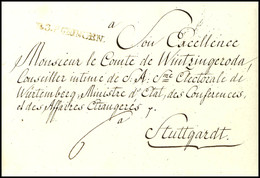 à
Son Excellence
Monsieur le Comte de Wintzingeroda
Conseiller intime de S: A: Sme Electorale de
Würtemberg, Ministre d'Etat, des Conferences,
et des Affaires Etrangeres
à
Stuttgardt.